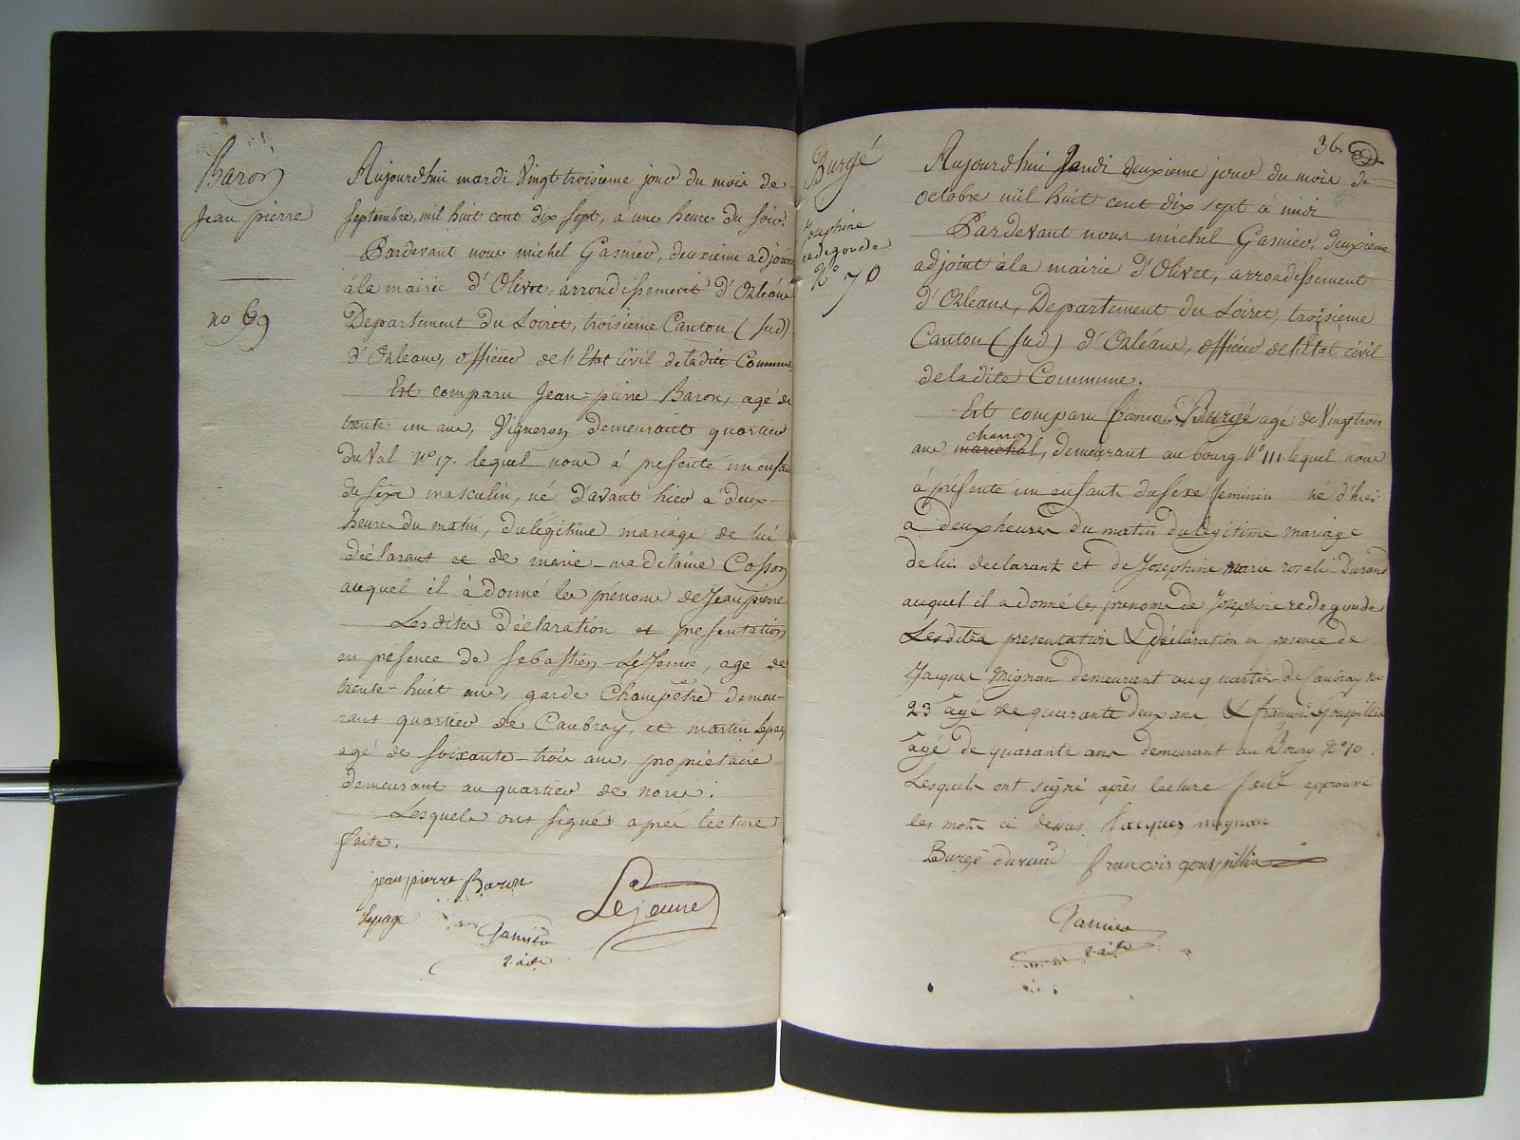 Baron
Jean pierre
no 69
Aujourdhui mardi Vingt troisieme jour du mois de
septembre, mil huit cent dix sept, a une heure du soir.
Pardevant nous michel Gasnier, deuxieme adjoint
à la mairie d'Olivet, arrondissement d'Orléans
Département du Loiret, troisieme Canton (sud)
d'Orleans, officier de l'Etat Civil de ladite Commune
Est comparu Jean-pierre Baron, agé de
trente un ans, Vigneron demeurant quartier
du Val n° 17. lequel nous à presenté un enfant
du sexe masculin, né d'avant hier à deux
heures du matin, du légitime mariage de lui
déclarant et de marie-madelaine Cosson
auquel il à donné les prénoms de Jean pierre
Lesdites déclaration et presentation
en presence de Sebastien Lejeune, agé de
trente-huit ans, garde Champêtre demeu-
rant quartier de Caubray, et martin Lepage
agé de soixante-trois ans, propriétaire
demeurant au quartier de
Lesquels ont signés apres lecture
faite.
jean pierre Baron
Lejeune
Lepage
Gasnier
2. adt
36.
Burgé
Josephine
radegonde
N° 70
Aujourdhui Jeudi deuxieme jour du mois de
octobre mil huit cent dix sept à midi
Pardevant nous michel Gasnier, deuxieme
adjoint à la mairie d'Olivet, arrondissement
d'Orleans, Departement du Loiret, troisieme
Canton (sud) d'Orléans, officier de l'Etat civil
de ladite Commune.
Est comparu francois Burgé agé de Vingt trois
charron
ans marechal, demeurant au bourg N° 111 lequel nous
à présenté un enfant du sexe feminin né d'hier
a deux heures du matin du legitime mariage
de lui declarant et de Josephine marie rosalie Durand
auquel il a donné les prenoms de Josephine redegonde
Lesdites presentation & déclaration en presence de
Jacques Mignan demeurant au quartier de Caubray no
23 âgé de quarante deux ans & françois Goupillia
âgé de quarante ans demeurant au bourg N° 10.
Lesquels ont signé après lecture faite approuvé
les mots ci dessus. Jacques mignan
Burgé durand francois goupillia
Gasnier
2. adt